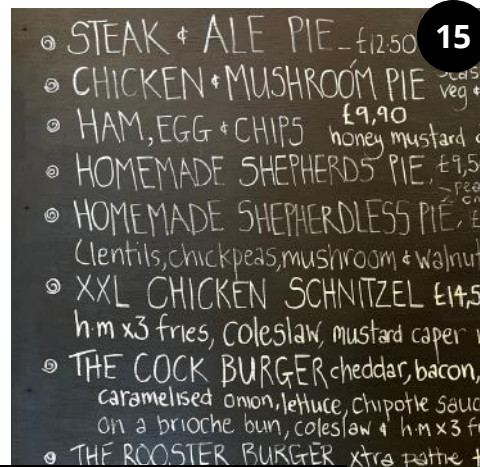 15
STEAK & ALE PIE - £12.50
CHICKEN & MUSHROOM PIE
veg &
£9,90
HAM, EGG & CHIPS honey mustard
HOMEMADE SHEPHERDS PIE, £9,5
HOMEMADE SHEPHERDLESS PIE, £
(lentils, chickpeas, mushroom & walnut
XXL CHICKEN SCHNITZEL £14,5
h.m x3 fries, coleslaw, mustard caper
THE COCK BURGER cheddar, bacon,
caramelised onion, lettuce, chipotle sauc
on a brioche bun, coleslaw & h.m x 3 f
THE ROOSTER BURGER xtra pattie +